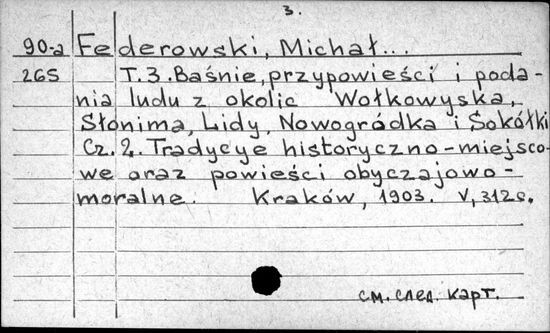 3.
90-a Federowski, Michał...
265 T.3. Baśnie, przypowieści i poda-
nia ludu z okolic Wołkowyska,
Słonima, Lidy, Nowogródka i Sokółki
Cz. 2. Tradycye historyczno-miejsco-
we oraz powieści obyczajowo-
moralne. Kraków, 1903. V, 312 с.
см. след. карт.